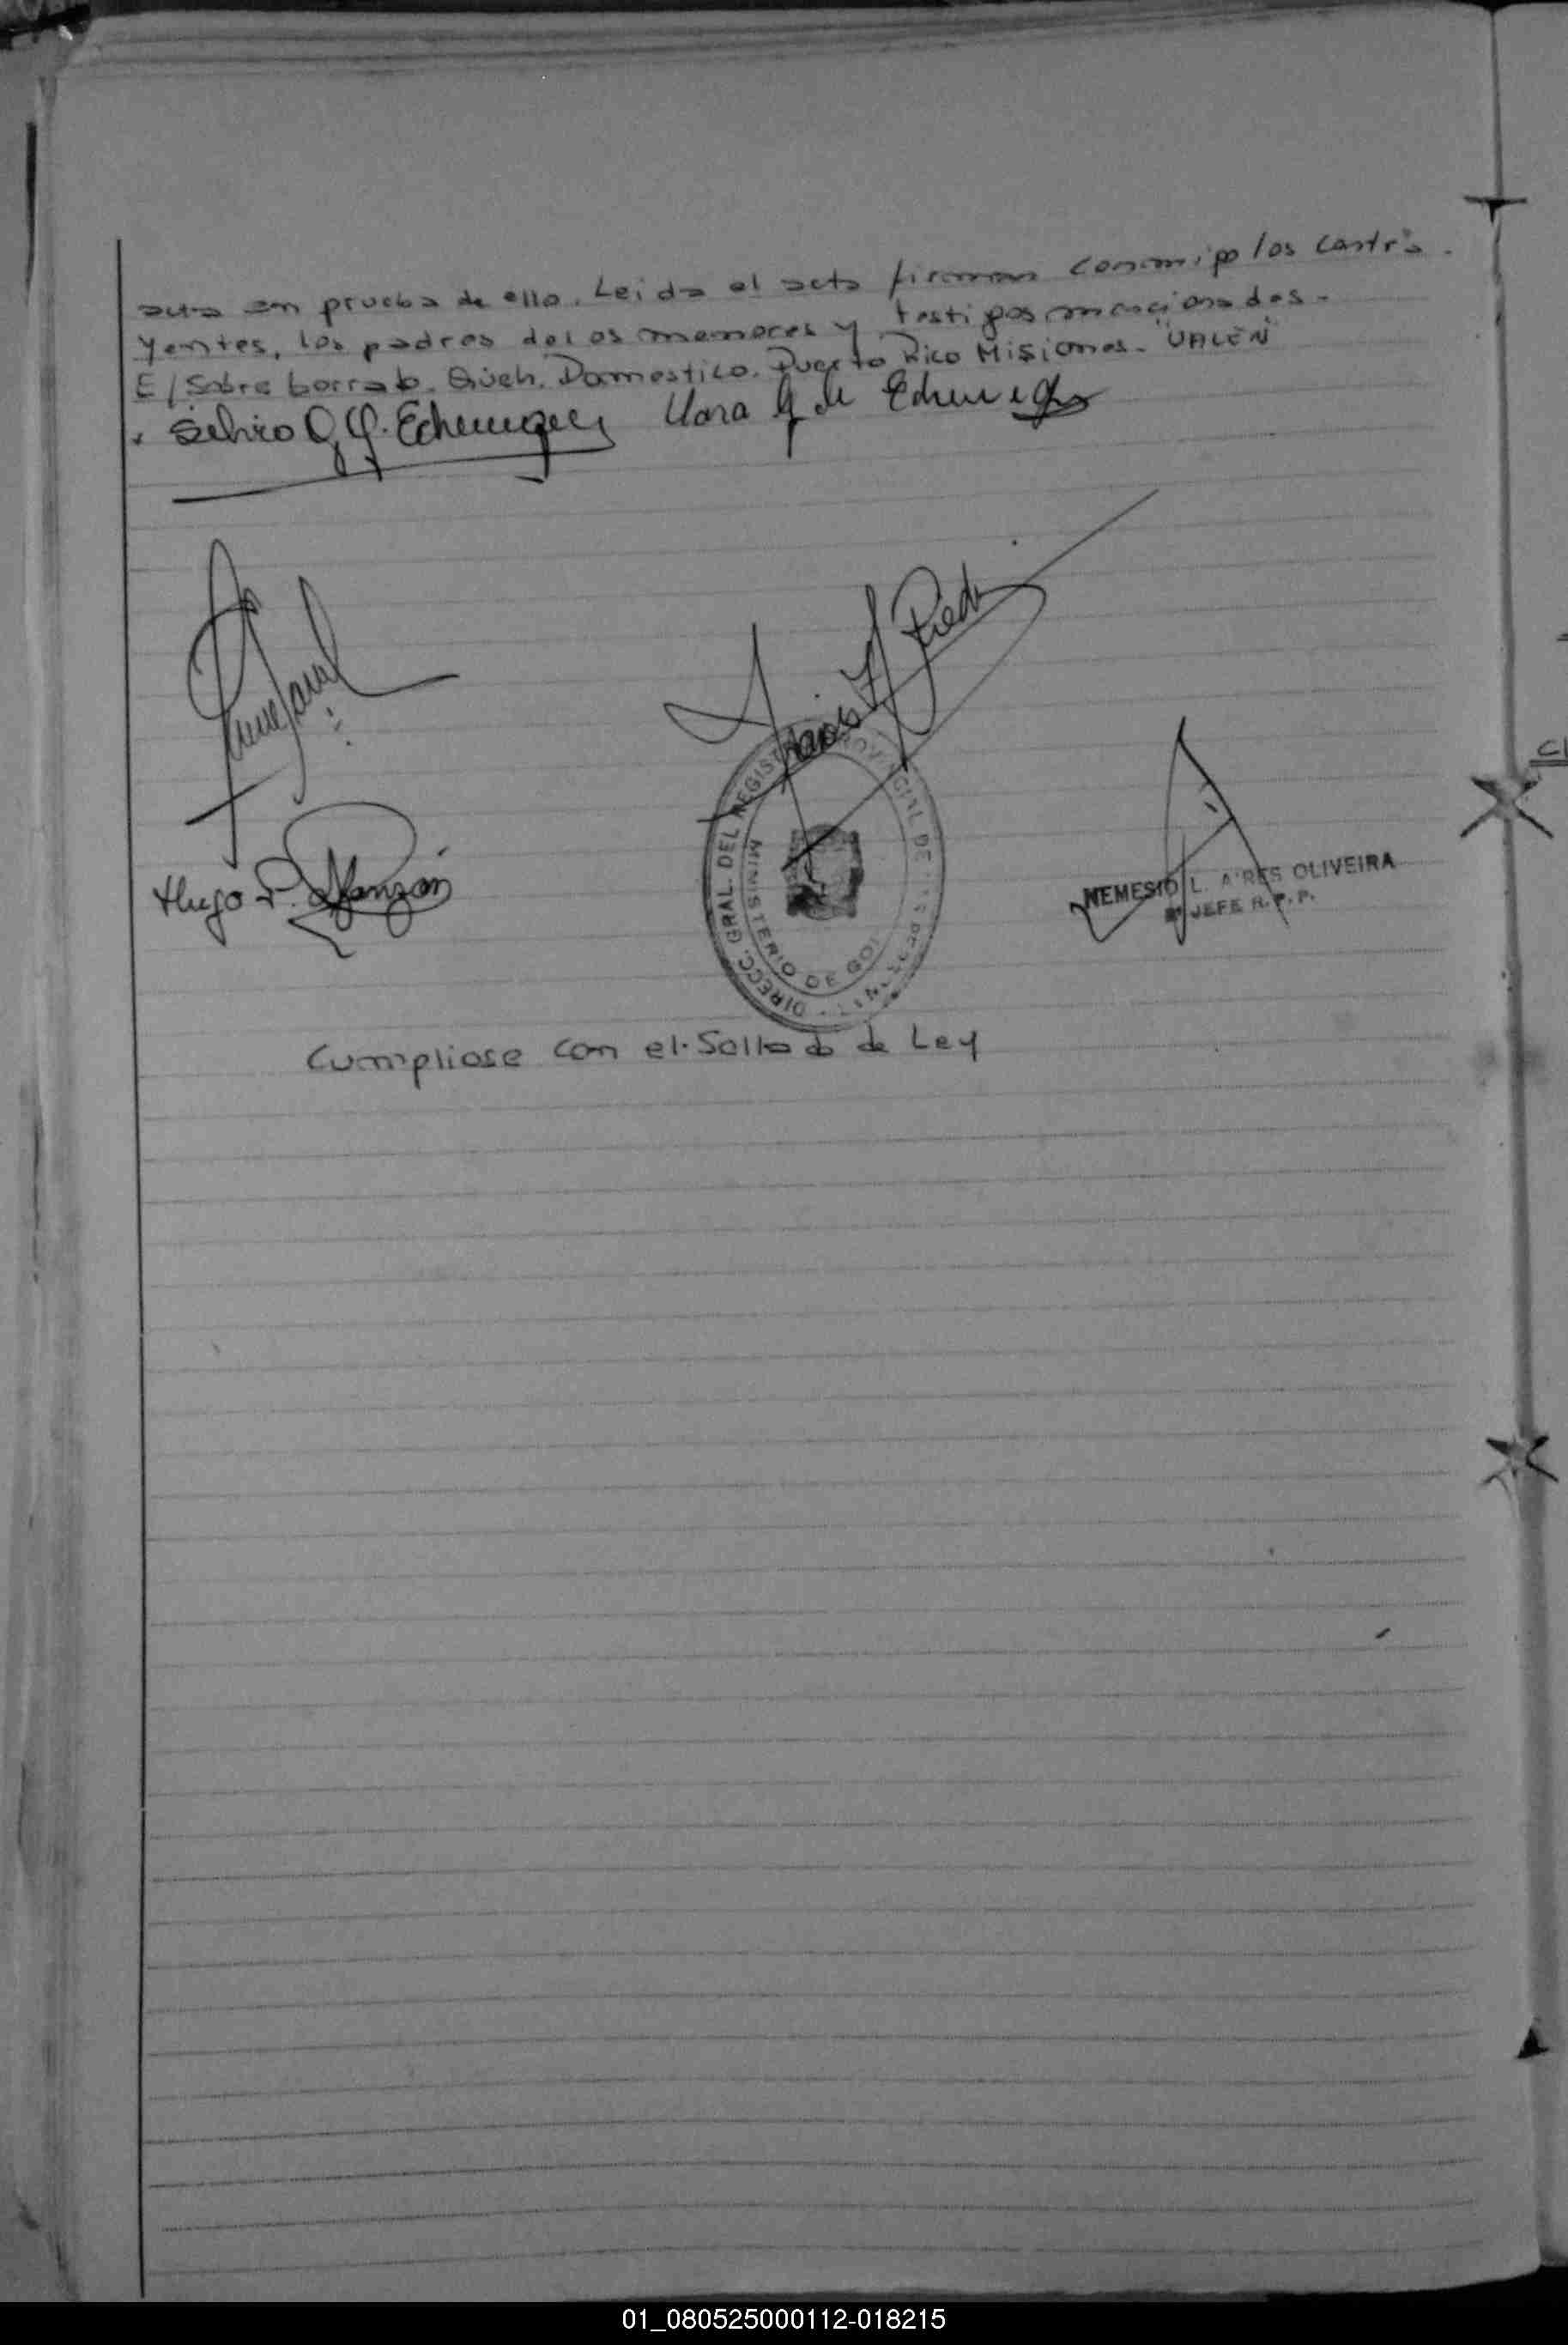 acta en prueba de ello. Leida el acta firman conmigo los contra-
yentes, los padres de los menores y testigos mencionados.-
E/Sobre borrado. Güeh. Domestico. Puerto Rico Misiones. "VALEN"
Silvio Echeverry Clara G de
Hugo P. Manzón
DIRECC. GRAL. DEL REGISTRO PROVINCIAL DE LAS PERSONAS
MINISTERIO DE GOB
NEMESIO L. AIRES OLIVEIRA
JEFE R.P.P.
Cumpliose con el Sellado de Ley
01_080525000112-018215